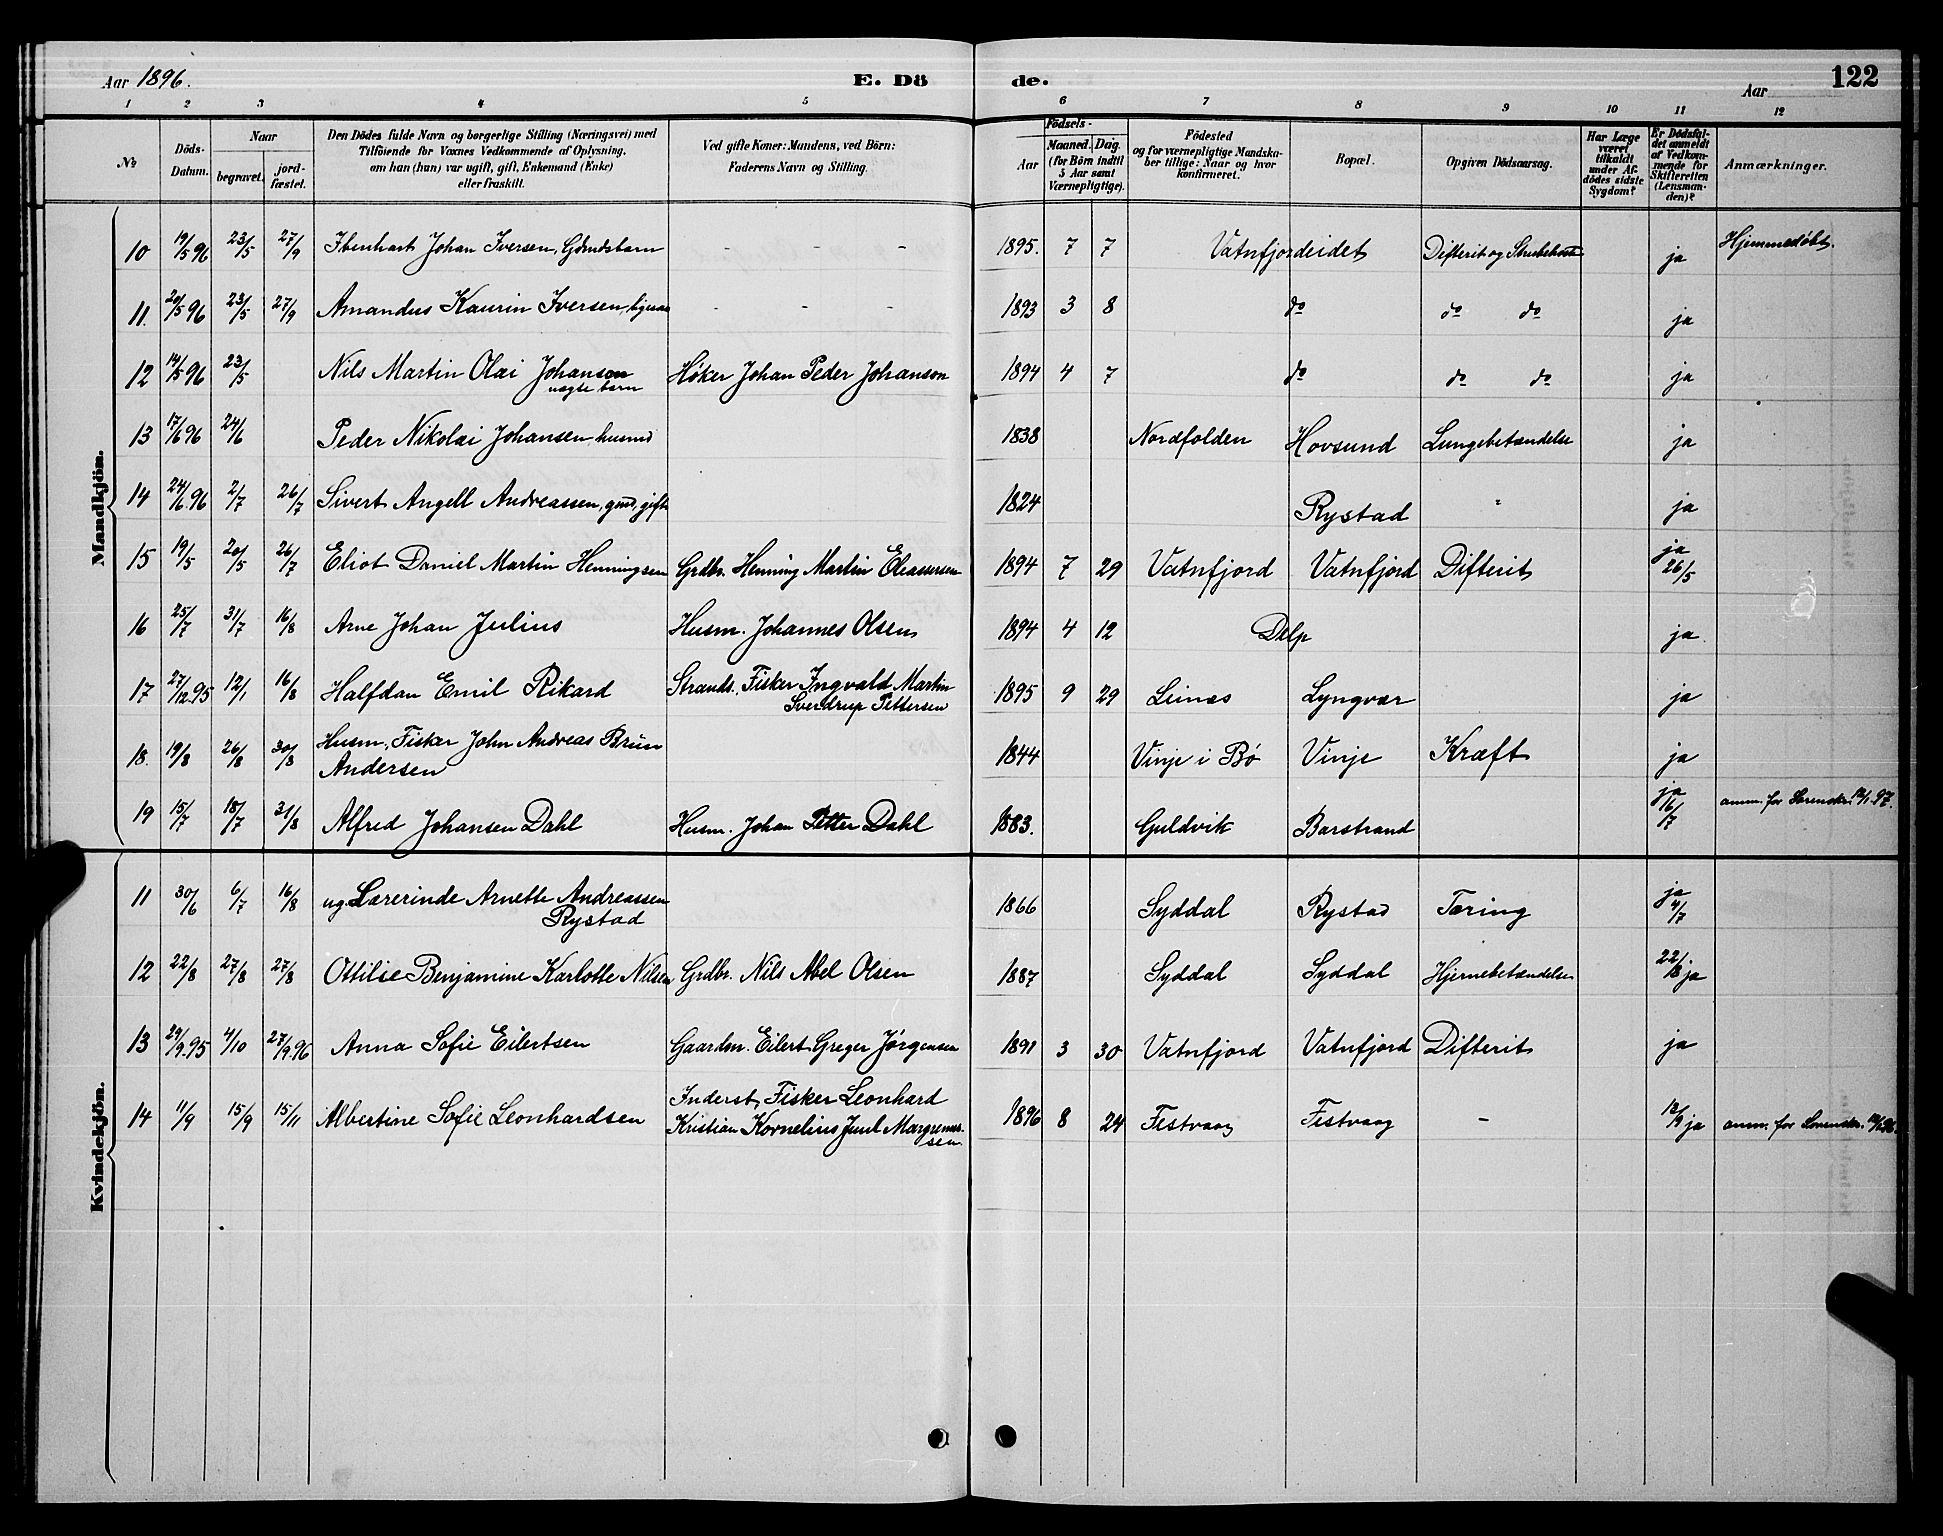 Aar 1896. E. Dö de. Aar 122
1 2 3 4 5 6 7 8 9 10 11 12
No Döds-Datum. Naar begravet. jord-fæstet. Den Dödes fulde Navn og borgerlige Stilling (Næringsvei) med Tilföiende for Voxnes Vedkommende af Oplysning, om han (hun) var ugift, gift, Enkemand (Enke) eller fraskilt. Ved gifte Koner: Mandens, ved Börn: Faderens Navn og Stilling. Födsels- Aar Maaned. Dag. (for Börn indtil 5 Aar samt Værnepligtige). Födested og for værnepligtige Mandskaber tillige: Naar og hvor konfirmeret. Bopæl. Opgiven Dödsaarsag. Har Læge været tilkaldt under Afdödes sidste Sygdom? Er Dödsfaldet anmeldt af Vedkommende for Skifteretten (Lensmanden)? Anmærkninger.
Mandkjön.
10 19/5 96 23/5 27/9 Ibenhart Johan Iversen, - - - 1895. 7 7 Vatnfjordeidet Difterit og Strubehoste ja Hjemmedøbt.
11. 20/5 96 23/5 27/9 Amandus Kaurin Iversen, ligesaa - - - 1893 3 8 do do do ja
12 14/5 96 23/5 Nils Martin Olai Johanson Høker Johan Peder Johanson 1894 4 7 do do do ja
uægte barn
13 17/6 96 24/6 Peder Nikolai Johansen, husmd 1838 Nordfolden Hovsund Lungebetændelse ja
14 24/6. 96 2/7 26/7 Sivert Angell Andreassen, gmd, gift 1824 Rystad " ja
15 19/5 20/5 26/7 Eliot Daniel Martin Henningsen Grdbr. Henning Martin Eleasersen 1894 7 29 Vatnfjord Vatnfjord Difterit ja 26/5
16 25/7 31/7 16/8 Arne Johan Julius Husm. Johannes Olsen 1894 4 12 Delp ja.
17 27/12.95 12/1 16/8 Halfdan Emil Rikard Strands. Fisker Ingvald Martin 1895 9 29 Leines Lyngvær ja
Sverdrup Pettersen
18. 19/8 26/8 30/8 Husm. Fisker John Andreas Brun 1844 Vinje i Bø Vinje Kræft ja
Andersen
19 15/7 18/7 31/8 Alfred Johansen Dahl Husm. Johan Petter Dahl 1883. Guldvik Barstrand ja 16/7 anm. for
Kvindekjön.
11 30/6 6/7 16/8 ug. Lærerinde Arnette Andreassen 1866 Syddal Rystad Tæring ja 4/7
Rystad
12 22/8 27/8 27/8 Ottilie Benjamine Karlotte Nilsen Grdbr. Nils Abel Olsen 1887 Syddal Syddal Hjernebetændelse 22/8 ja
13 29/9.95 4/10 27/9.96 Anna Sofie Eilertsen Gaardm. Eilert Greger Jørgensen 1891 3 30 Vatnfjord Vatnfjord Difterit ja
14 11/9 15/9 15/11 Albertine Sofie Leonhardsen Inderst, Fisker Leonhard 1896 8 24 Festvaag Festvaag - 12/9 ja anm. for
Kristian Kornelius Juul